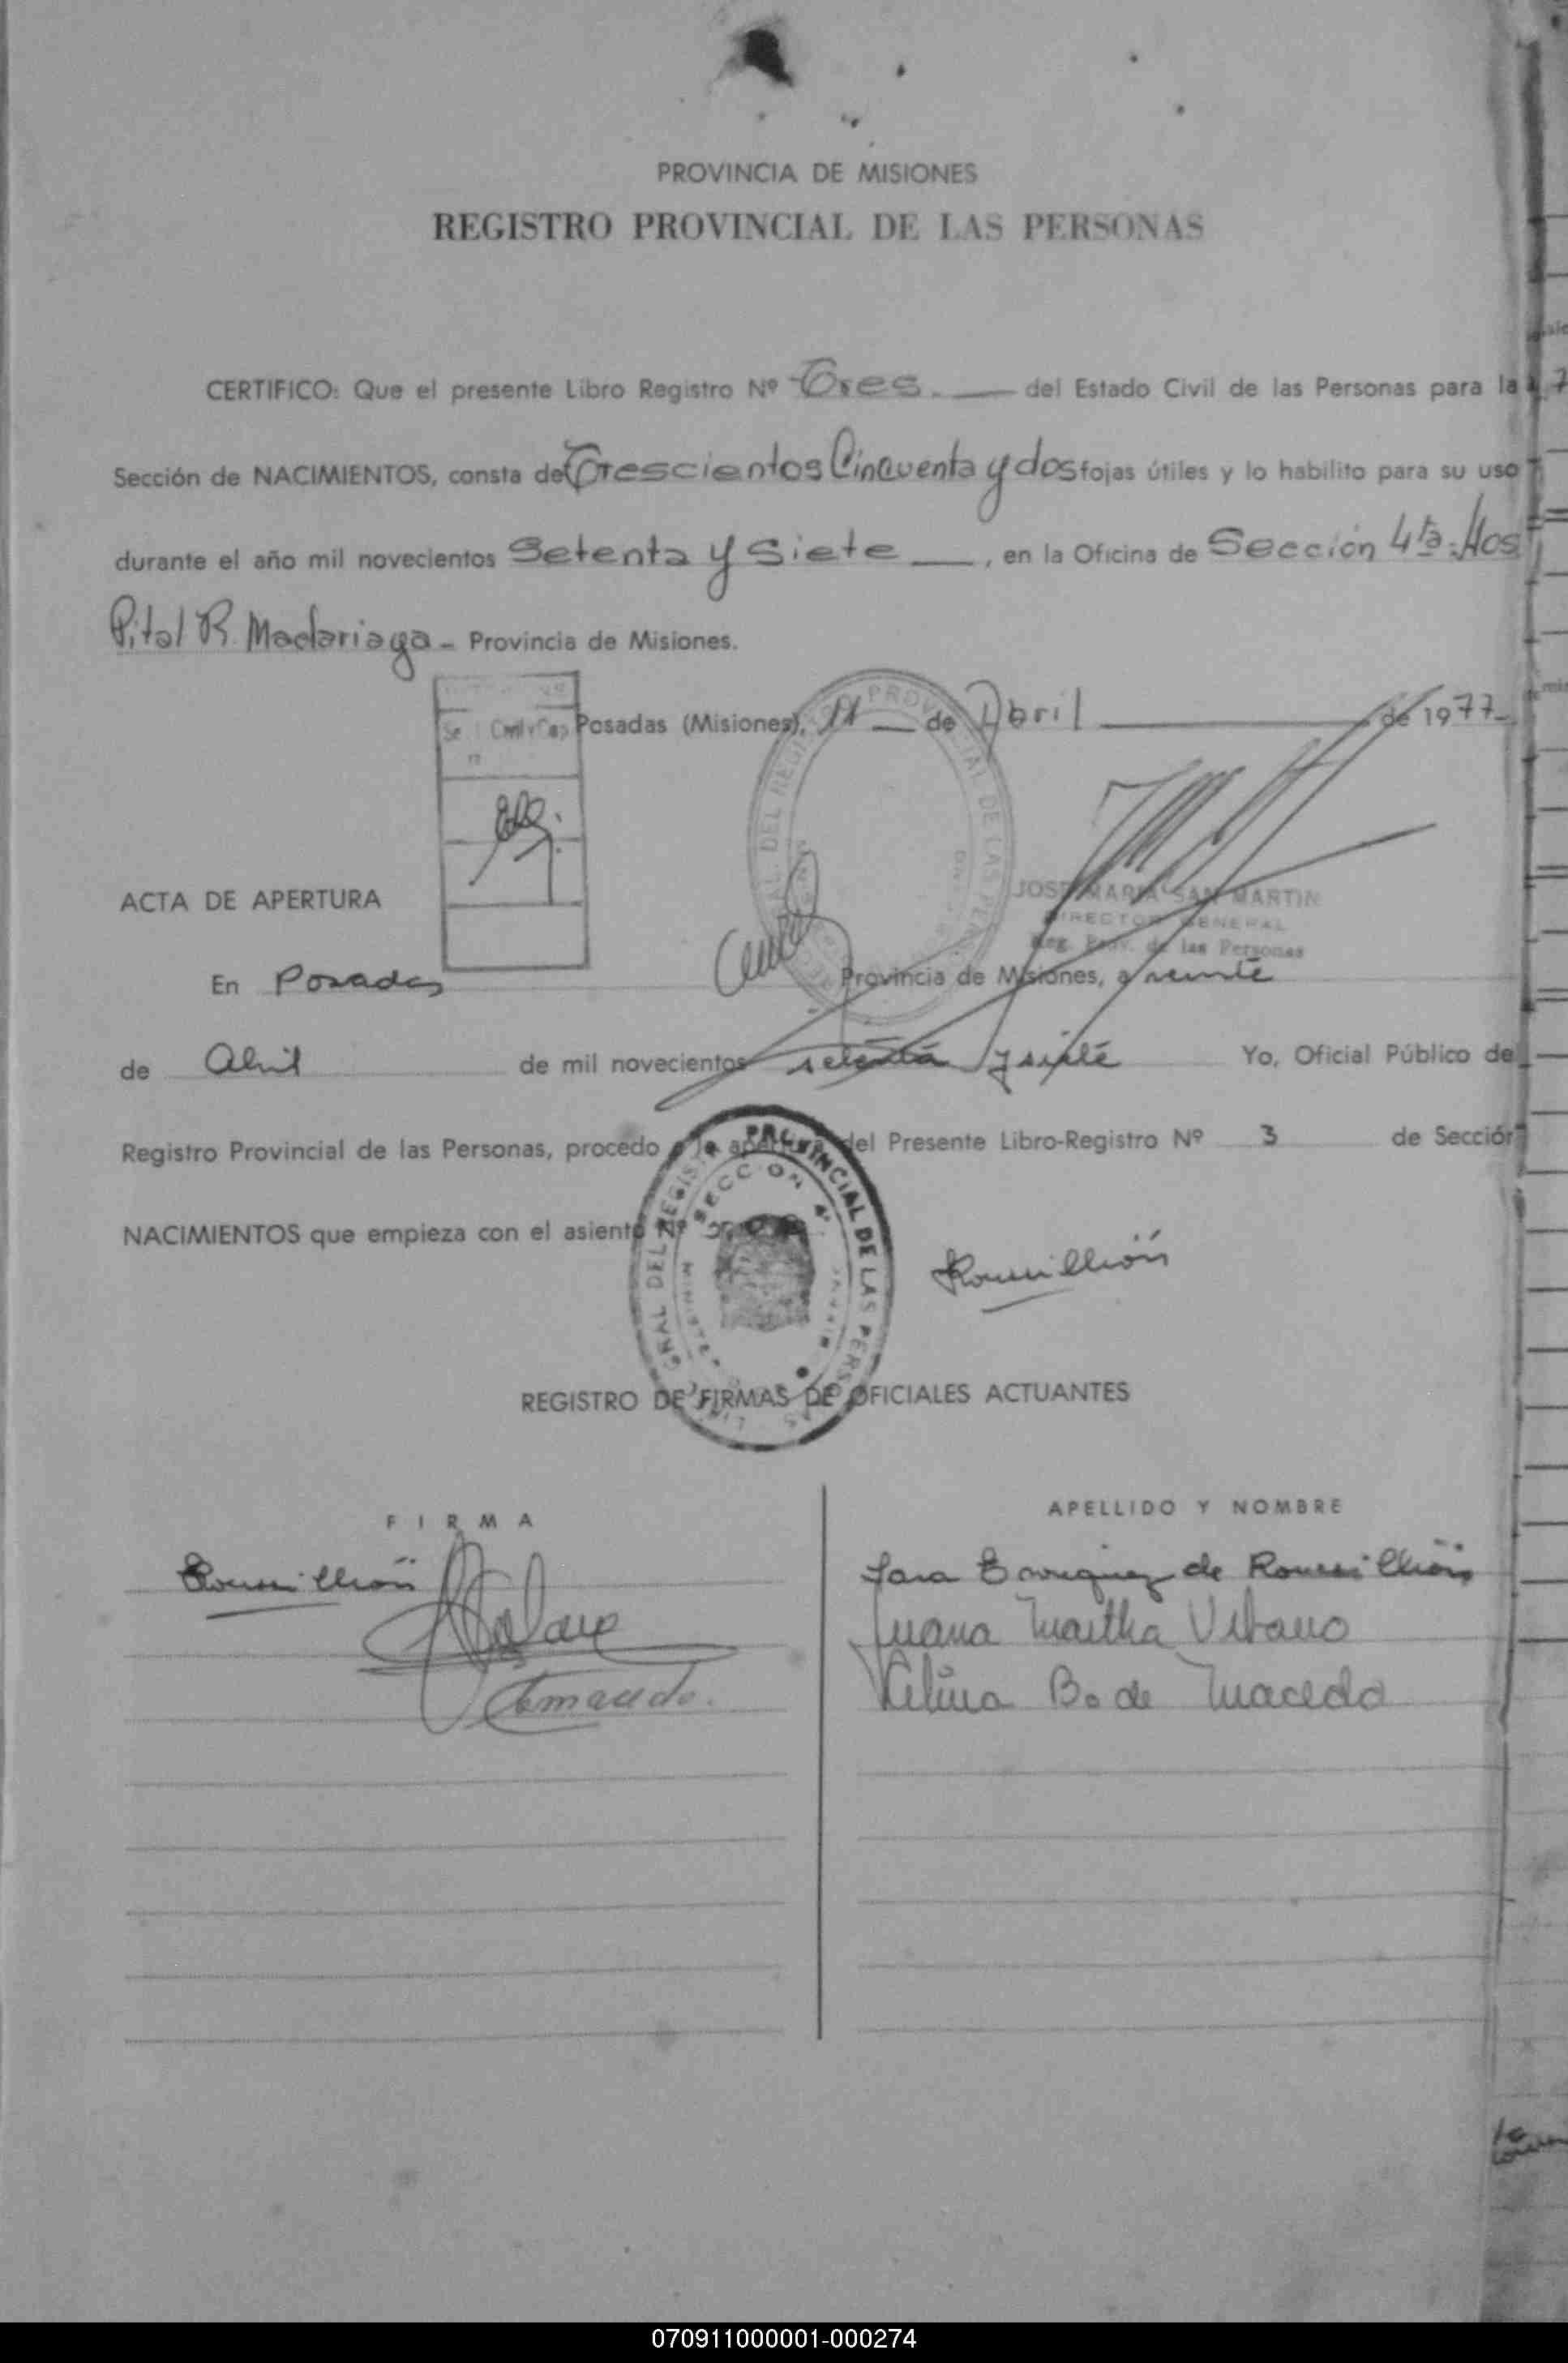 PROVINCIA DE MISIONES
REGISTRO PROVINCIAL DE LAS PERSONAS
CERTIFICO: Que el presente Libro Registro Nº Tres. — del Estado Civil de las Personas para la
Sección de NACIMIENTOS, consta de Trescientos Cincuenta y dos fojas útiles y lo habilito para su uso
durante el año mil novecientos Setenta y Siete —, en la Oficina de Sección 4ta. Hos
Pital R. Madariaga - Provincia de Misiones.
Posadas (Misiones), 11 — de Abril — de 1977
JOSE MARIA SAN MARTIN
DIRECTOR GENERAL
Reg. Prov. de las Personas
ACTA DE APERTURA
En Posadas Provincia de Misiones, a veinte
de Abril de mil novecientos setenta y siete Yo, Oficial Público del
Registro Provincial de las Personas, procedo a la apertura del Presente Libro-Registro Nº 3 de Sección
NACIMIENTOS que empieza con el asiento Nº
GRAL DEL REGISTRO PROVINCIAL DE LAS PERSONAS
SECCION 4ª
Roumillión
REGISTRO DE FIRMAS DE OFICIALES ACTUANTES
FIRMA APELLIDO Y NOMBRE
Roumillión Sara Enriquez de Roumillión
Juana Martha Urbano
Celina B. de Macedo
070911000001-000274